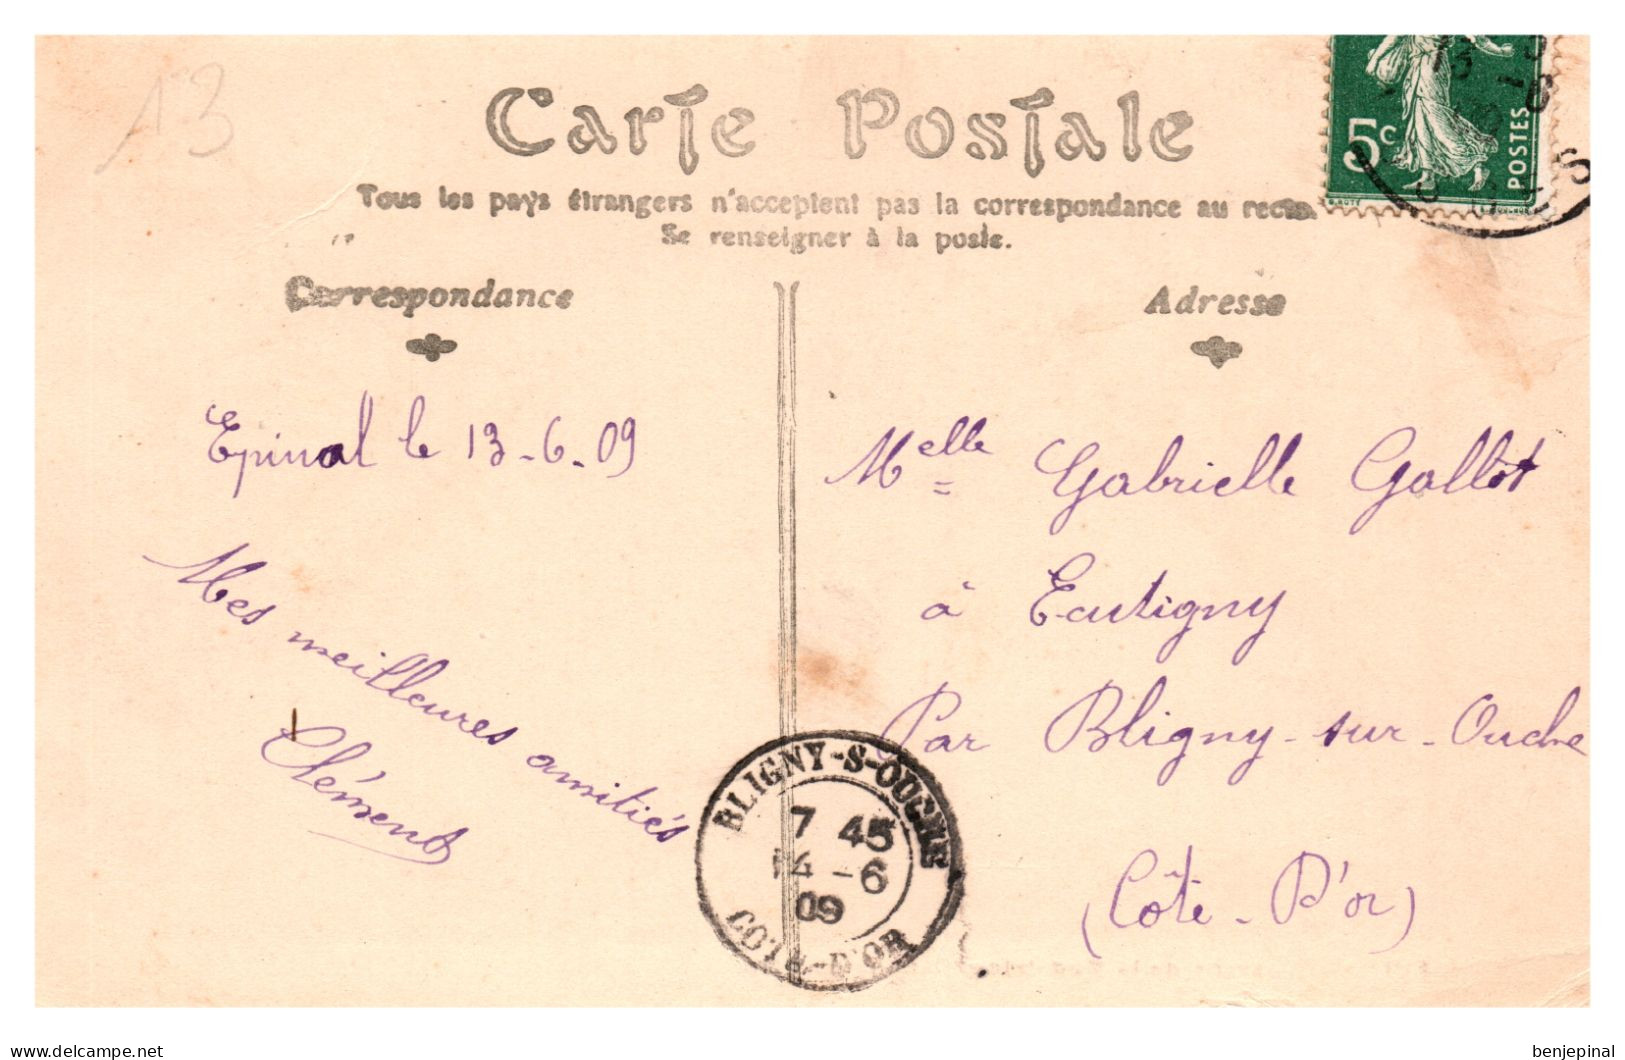 13
Carte Postale
Tous les pays étrangers n'acceptent pas la correspondance au recto.
Se renseigner à la poste.
5c
POSTES
Correspondance
Adresse
Epinal le 13-6-09
Mes meilleures amitiés
Clément
Melle Gabrielle Gallot
à Ecutigny
Par Bligny-sur-Ouche
(Côte-D'or)
BLIGNY-S-OUCHE
7 45
14 -6
09
COTE-D'OR
www.delcampe.net
benjepinal